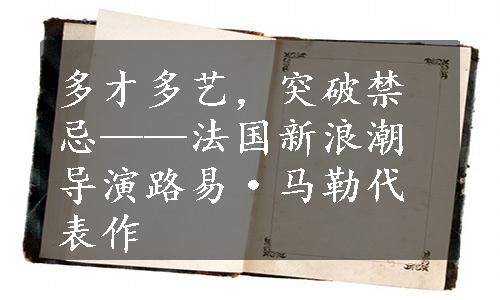 多才多艺，突破禁
忌——法国新浪潮
导演路易·马勒代
表作